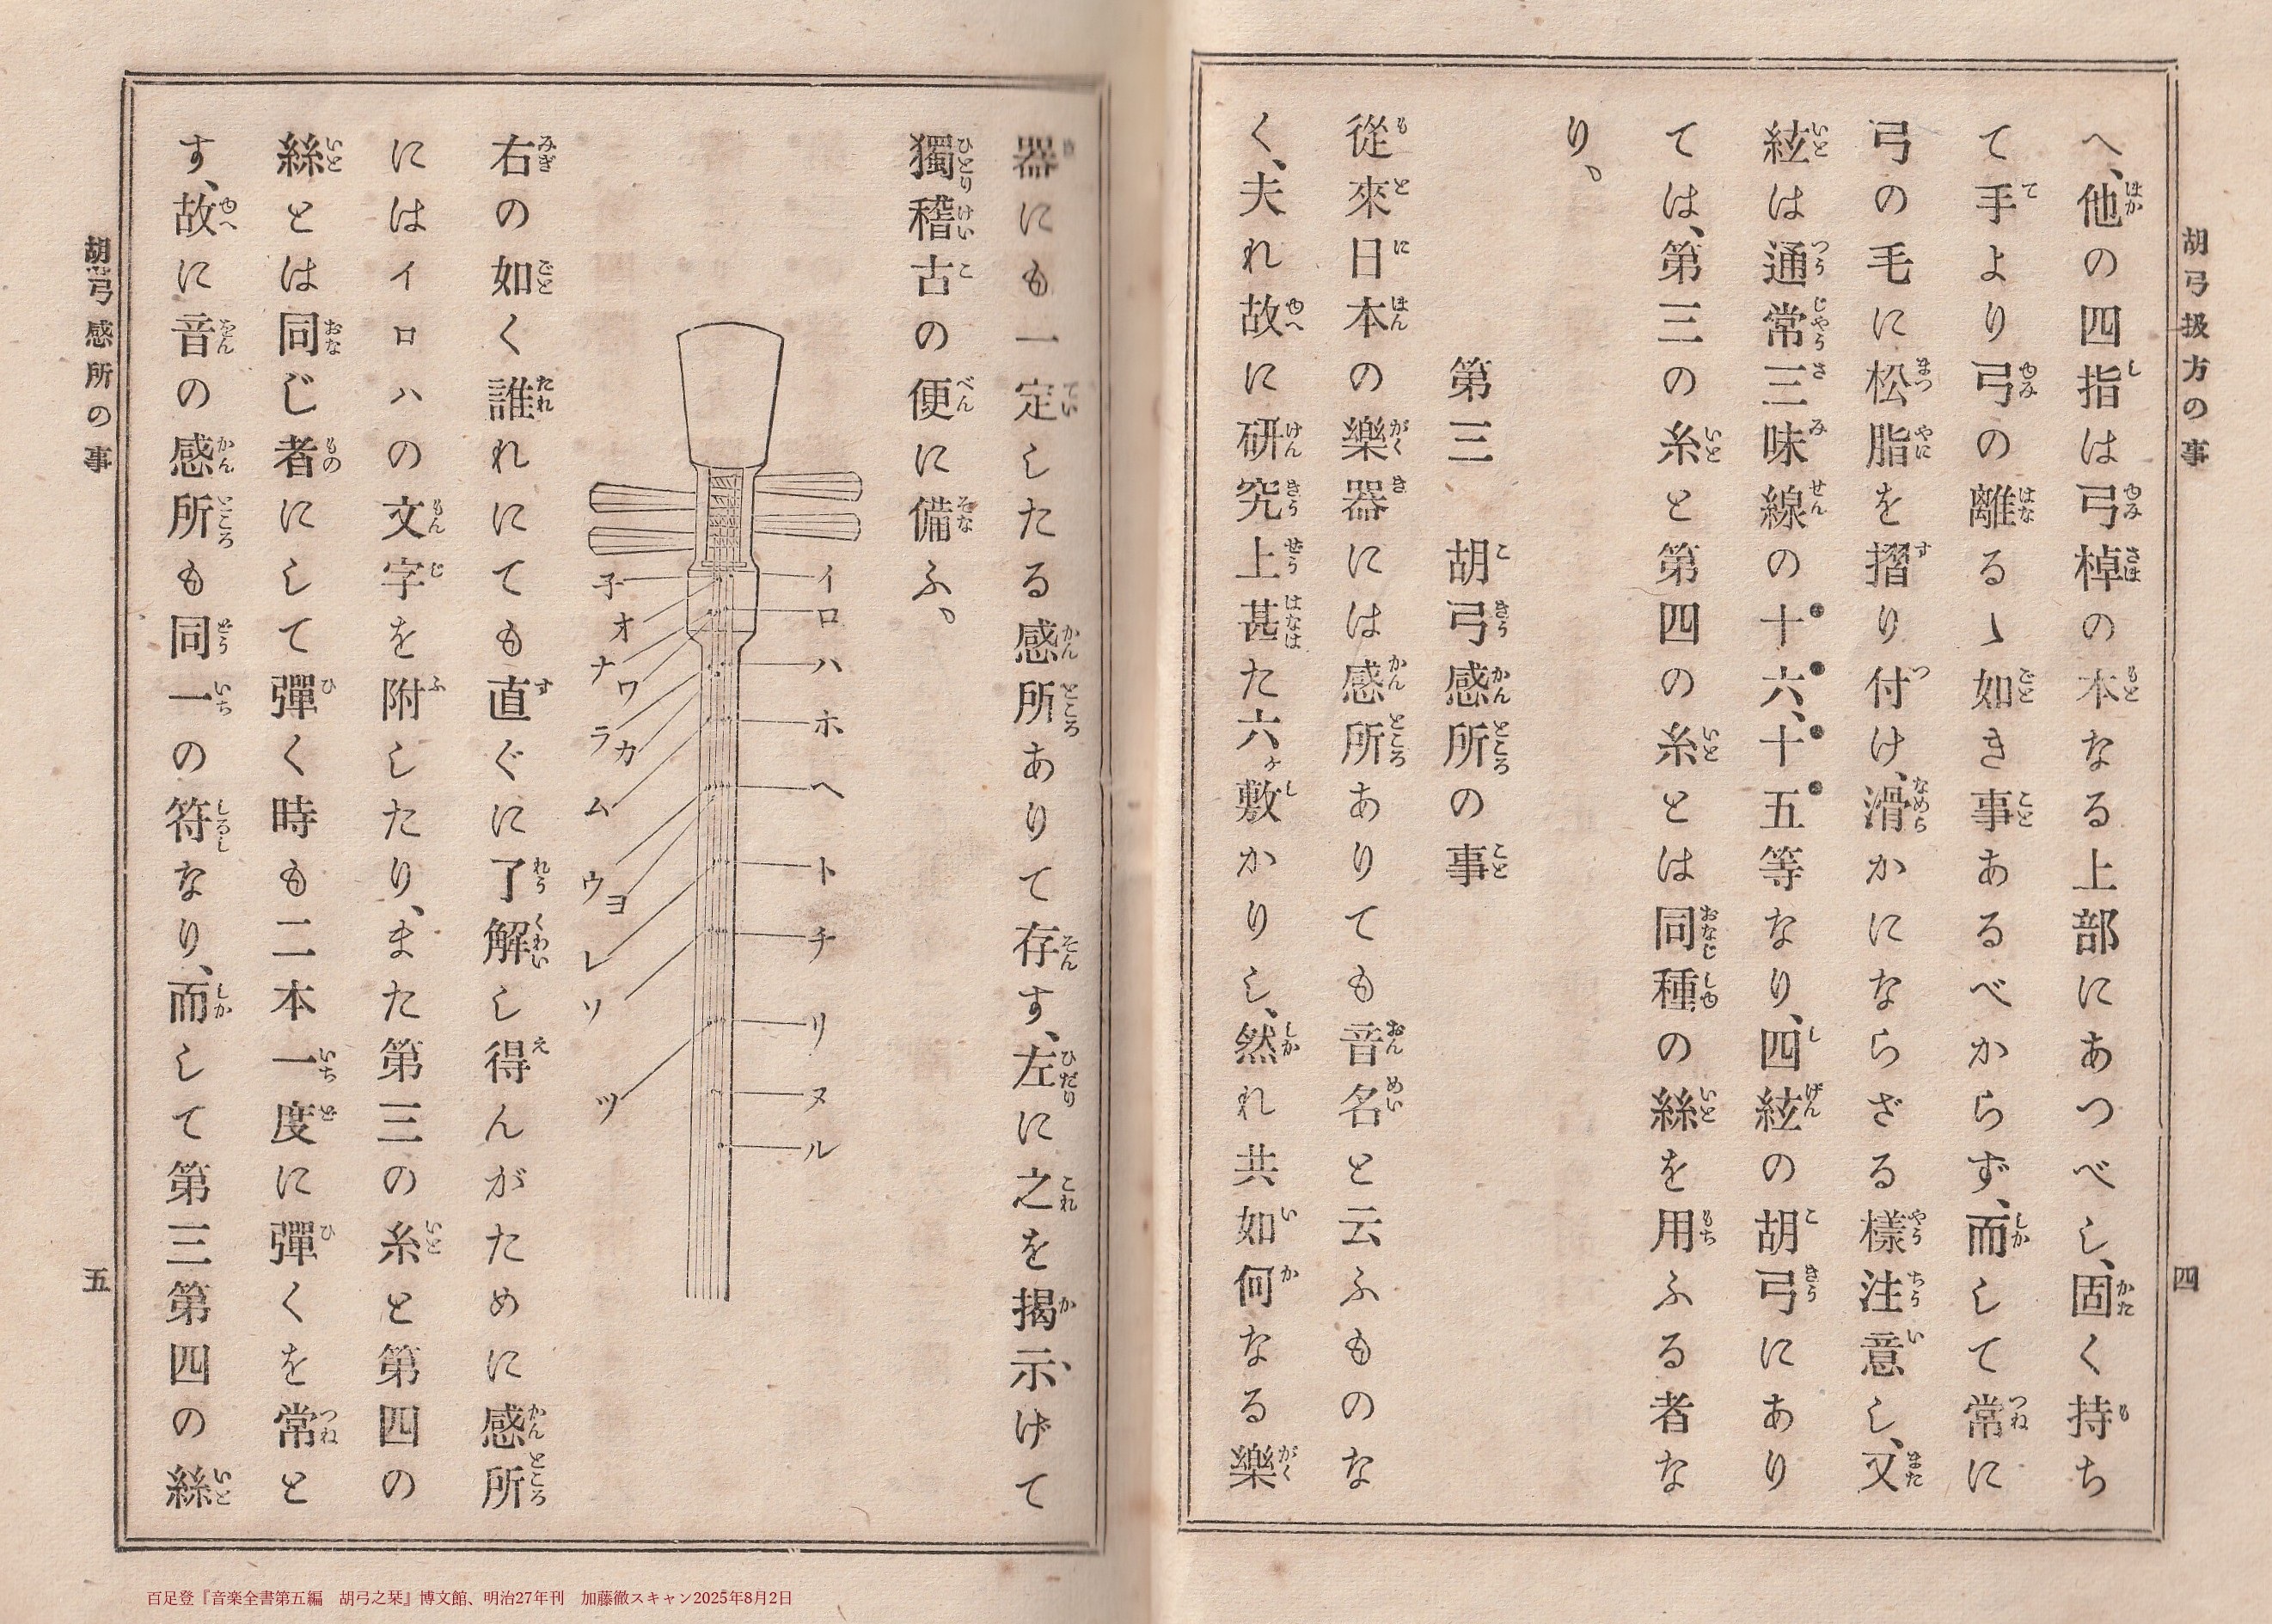 胡弓扱方の事
四
へ、他の四指は弓棹の本なる上部にあつべし、固く持ち
て手より弓の離るゝ如き事あるべからず、而して常に
弓の毛に松脂を摺り付け、滑かにならざる樣注意し、又
絃は通常三味線の十六、十五等なり、四絃の胡弓にあり
ては、第三の糸と第四の糸とは同種の絲を用ふる者な
り、
第三　胡弓感所の事
從來日本の樂器には感所ありても音名と云ふものな
く、夫れ故に研究上甚た六ヶ敷かりし、然れ共如何なる樂
器にも一定したる感所ありて存す、左に之を揭示げて
獨稽古の便に備ふ、
イ
ロ
ハ
ホ
ヘ
ト
チ
リ
ヌ
ル
子
オ
ナ
ワ
ラ
カ
ム
ウ
ヨ
レ
ソ
ツ
右の如く誰れにても直ぐに了解し得んがために感所
にはイロハの文字を附したり、また第三の糸と第四の
絲とは同じ者にして彈く時も二本一度に彈くを常と
す、故に音の感所も同一の符なり、而して第三第四の絲
胡弓感所の事
五
百足登『音楽全書第五編　胡弓之栞』博文館、明治27年刊　加藤徹スキャン2025年8月2日